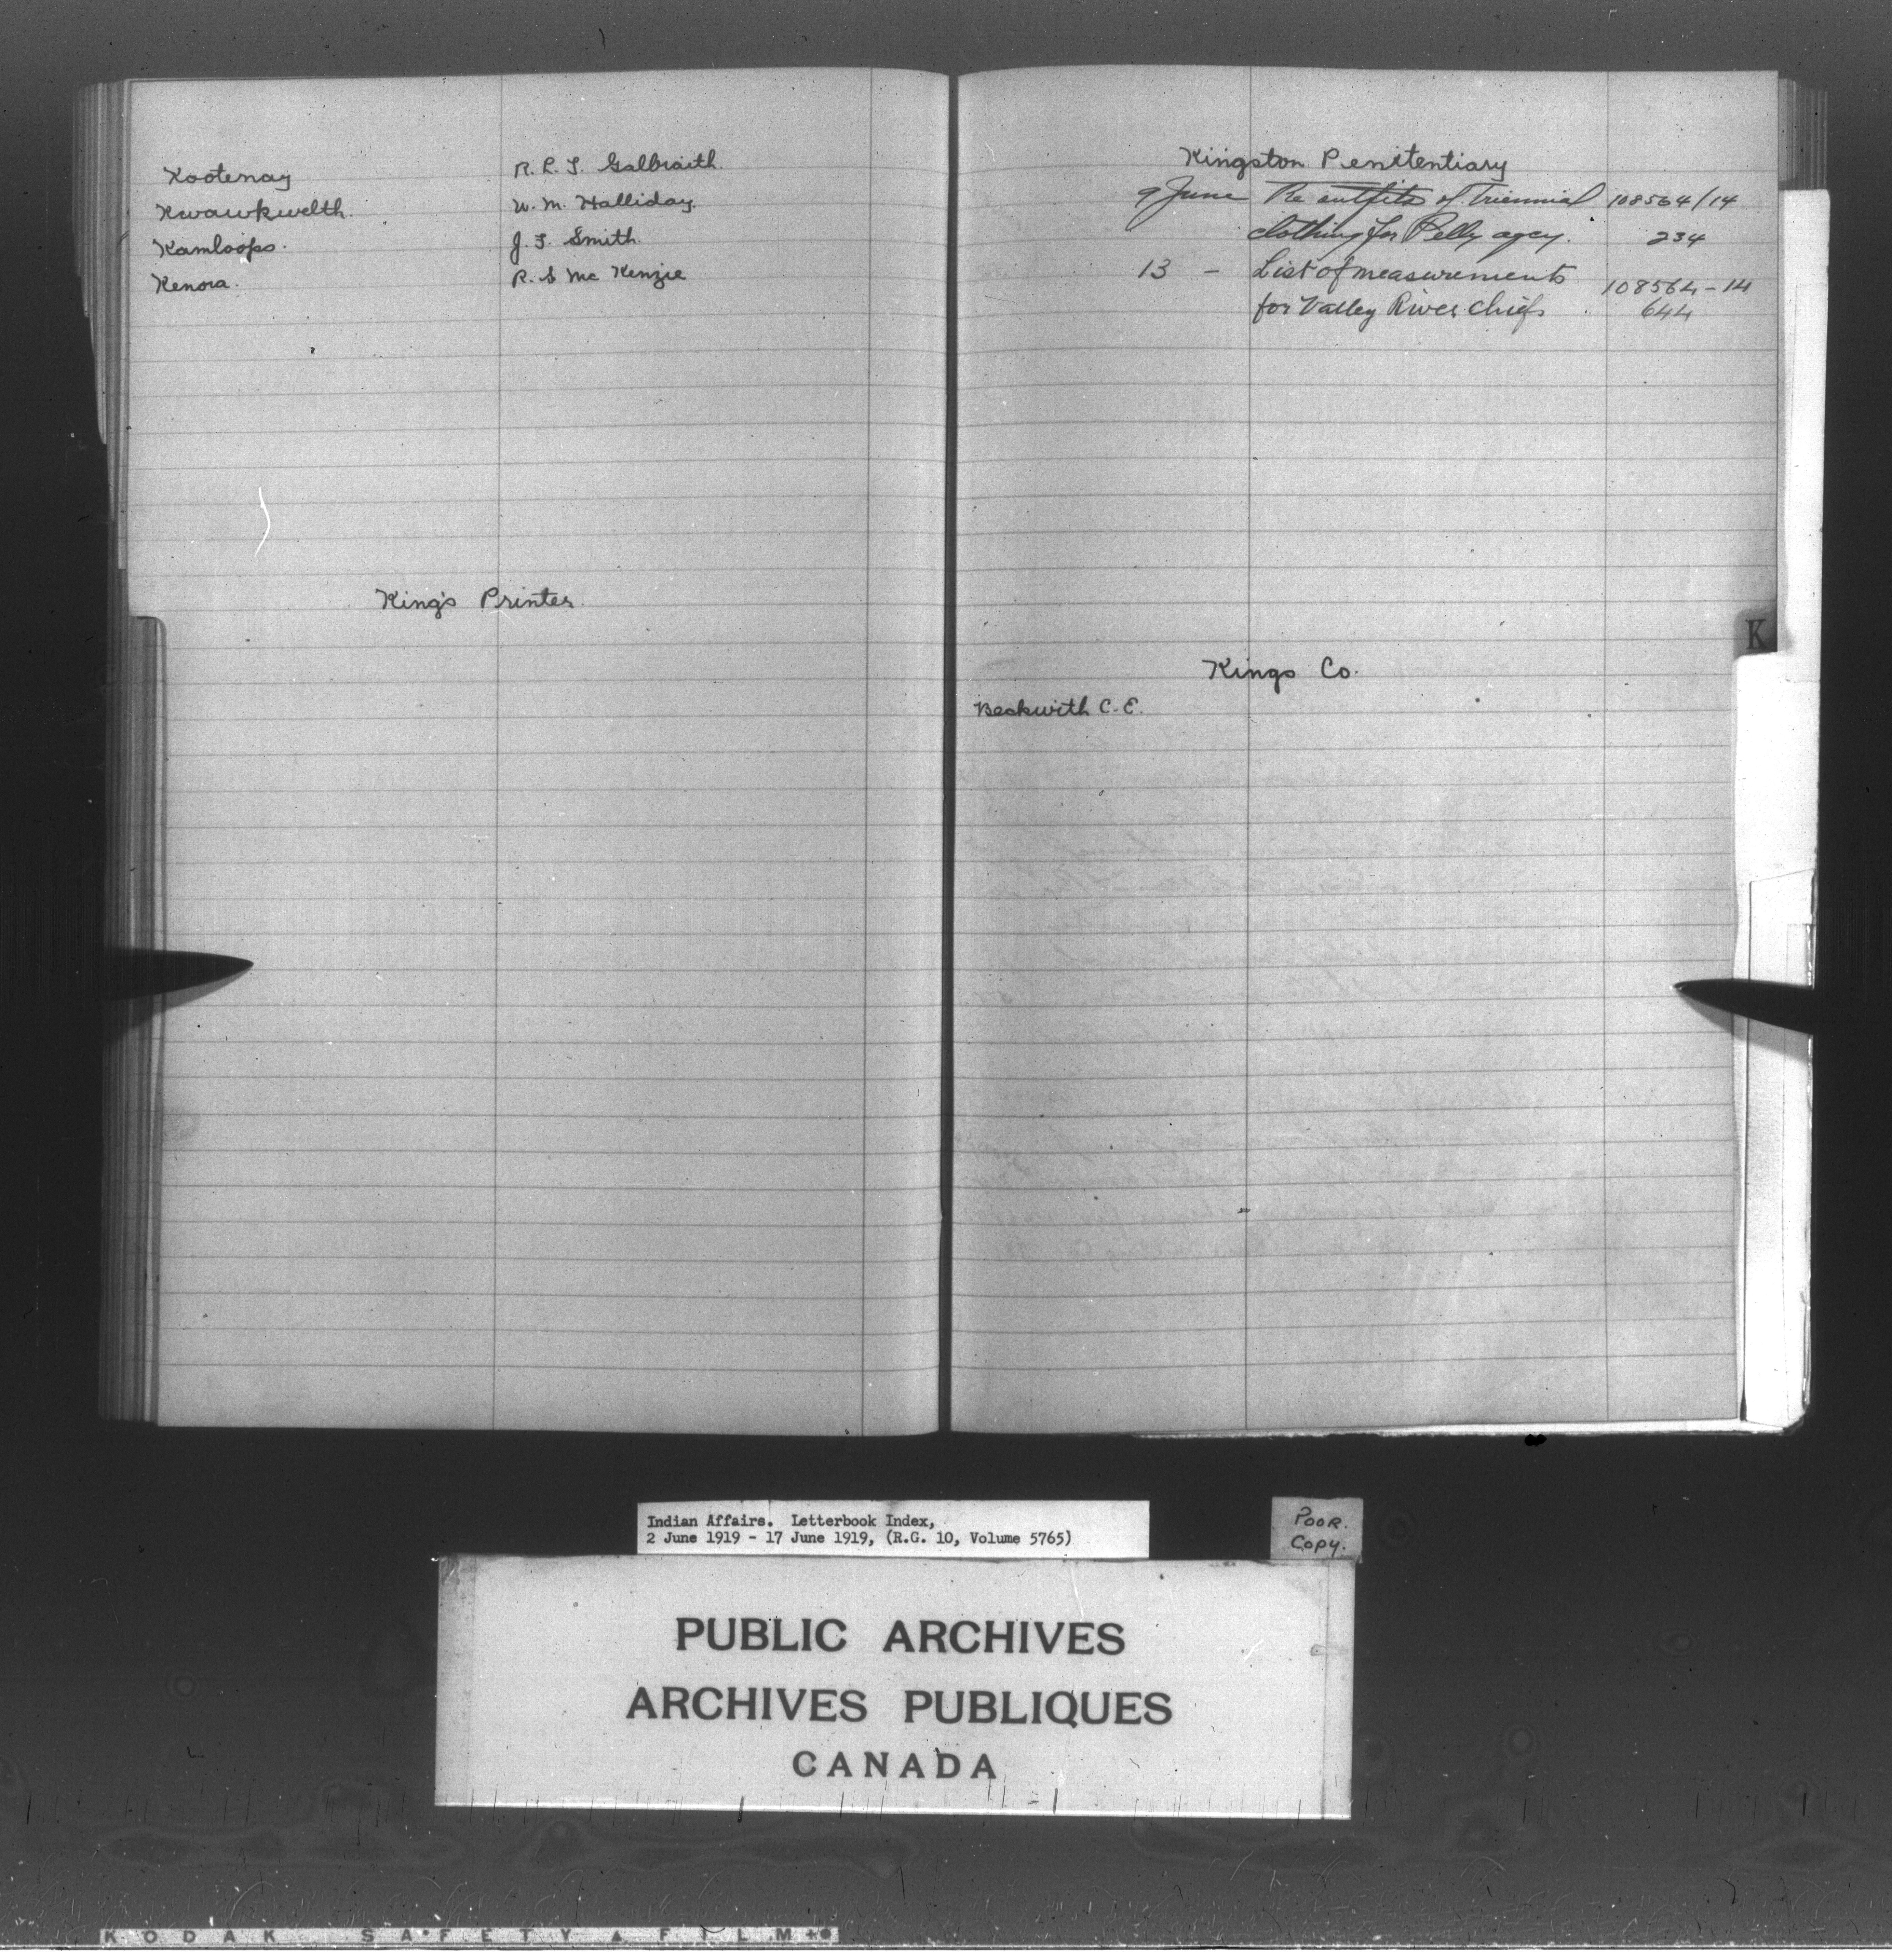 Kootenay R. L. T. Galbraith.
Kwawkwelth. W. M. Halliday.
Kamloops. J. F. Smith.
Kenora. R. S Mc Kenzie
King's Printer.
Kingston Penitentiary
9 June Re outfits of Triennial 108564/14
clothing for Pelly agcy. 234
13 - List of measurements 108564-14
for Valley River Chiefs 644
K
Kings Co.
Beckwith C. E.
Indian Affairs. Letterbook Index,
2 June 1919 - 17 June 1919, (R.G. 10, Volume 5765)
POOR.
COPY.
PUBLIC ARCHIVES
ARCHIVES PUBLIQUES
CANADA
KODAK SAFETY ▲ FILM